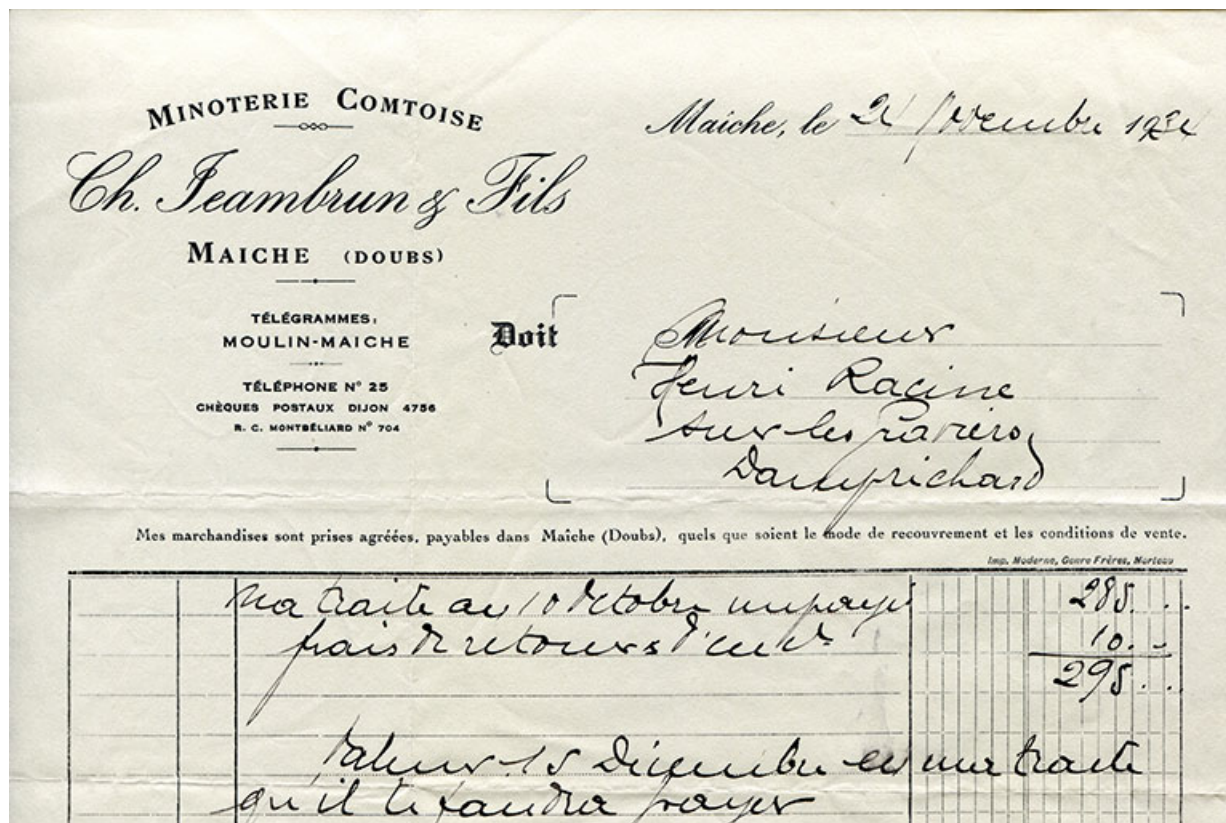 MINOTERIE COMTOISE
Ch. Jeambrun & Fils
MAICHE (DOUBS)
TÉLÉGRAMMES:
MOULIN-MAICHE
TÉLÉPHONE N° 25
CHÈQUES POSTAUX DIJON 4756
R. C. MONTBÉLIARD N° 704
Maiche, le 24 Novembre 1934
Doit
Monsieur
Henri Racine
sur les
Damprichard
Mes marchandises sont prises agréées, payables dans Maîche (Doubs), quels que soient le mode de recouvrement et les conditions de vente.
Imp. Moderne, Genre Frères, Morteau
ma traite au 10 Octobre impayée 285. . .
frais de retour 10. -
295. . .
Valeur 15 Décembre en ma traite
qu'il te faudra payer